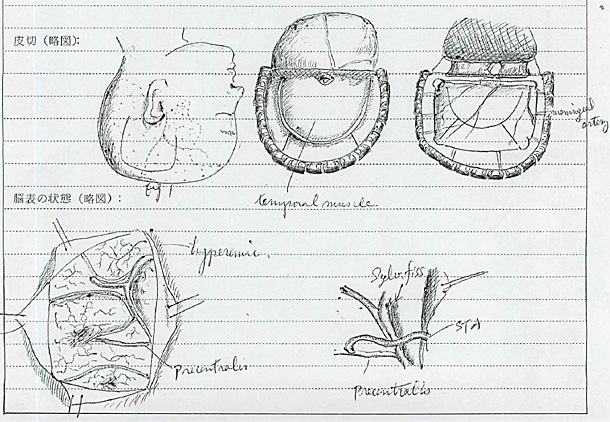 皮切（略図）：
meningeal
artery
temporal muscle
脳表の状態（略図）：
hyperemic.
Sylv. fiss
STA
precentralis
precentralis